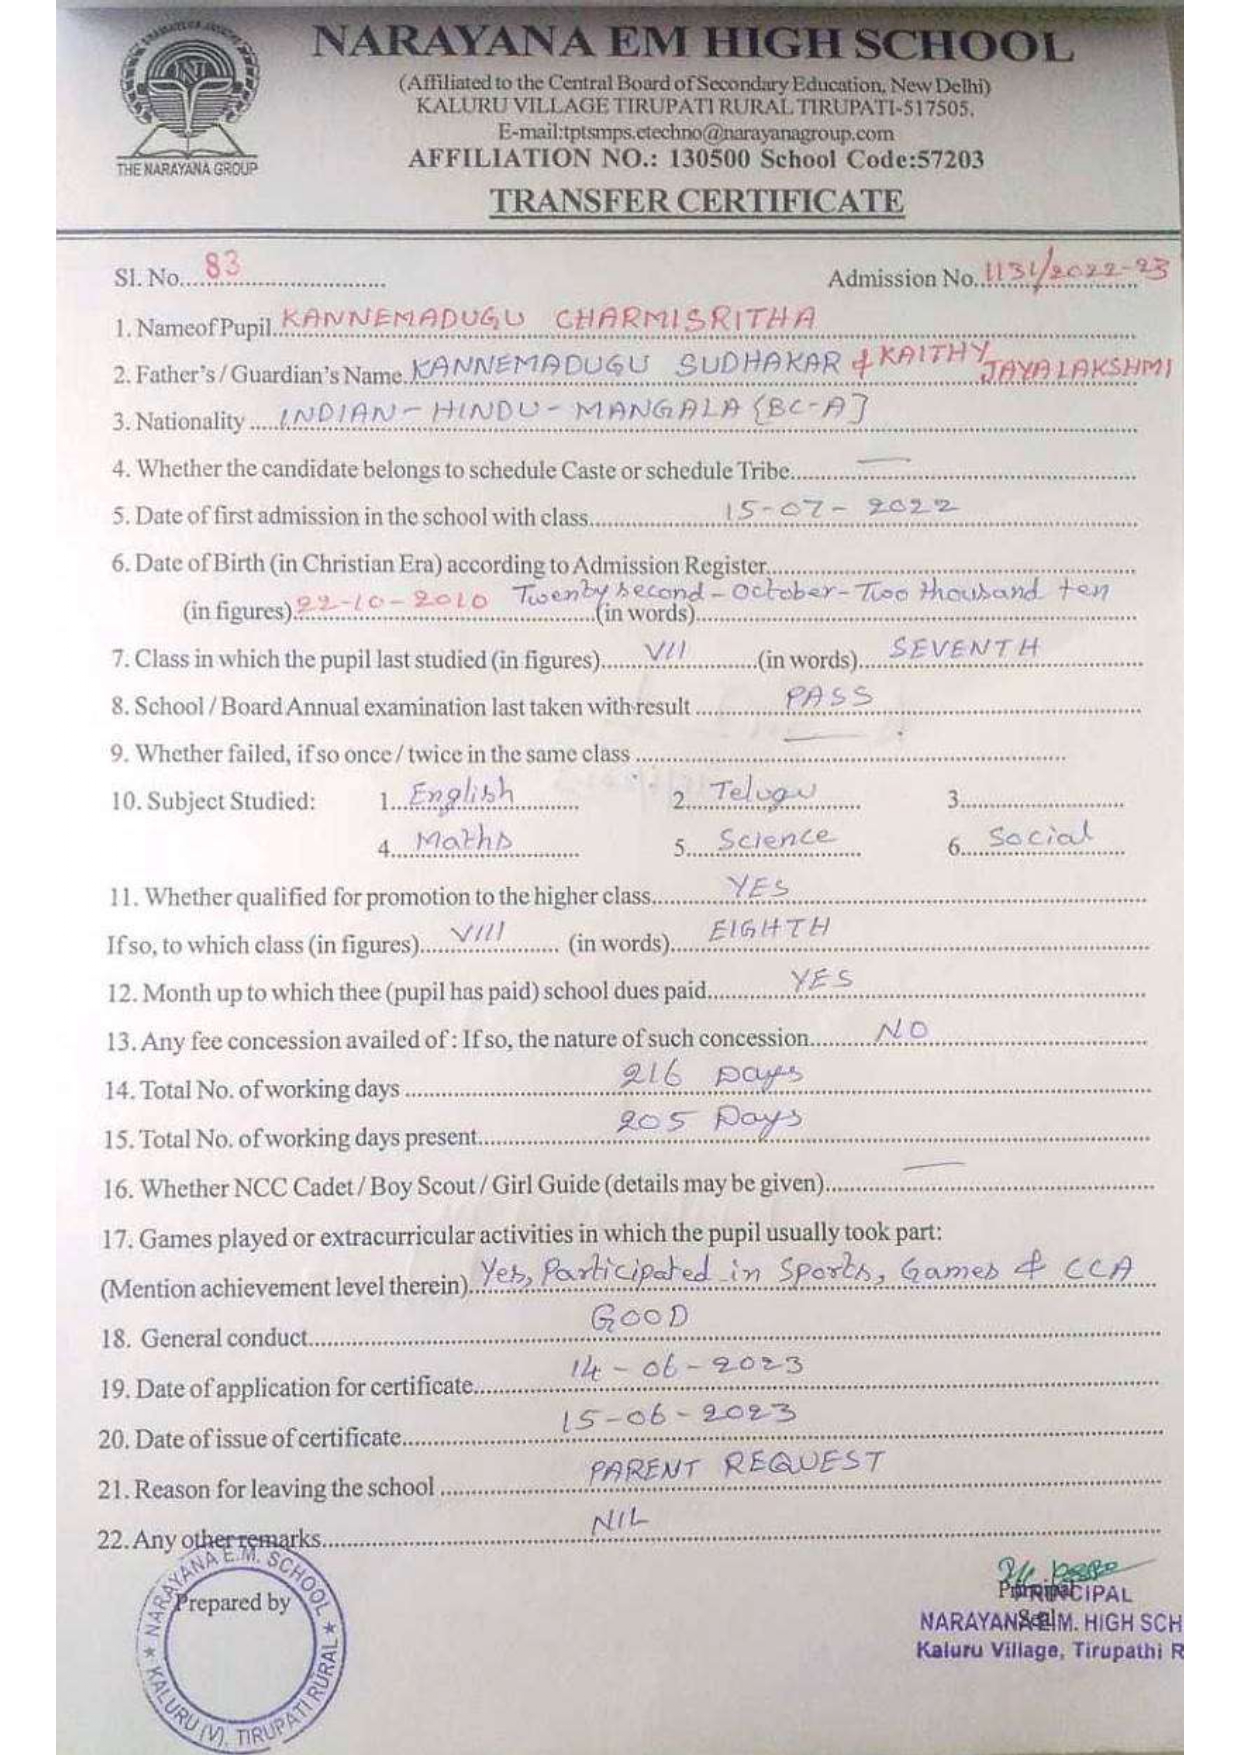 NARAYANA EM HIGH SCHOOL
(Affiliated to the Central Board of Secondary Education, New Delhi)
KALURU VILLAGE TIRUPATI RURAL TIRUPATI-517505.
E-mail:tptsmps.etechno@narayanagroup.com
THE NARAYANA GROUP
AFFILIATION NO.: 130500 School Code:57203
TRANSFER CERTIFICATE
Sl. No. 83 Admission No. 1131/2022-23
1. Name of Pupil. KANNEMADUGU CHARMISRITHA
2. Father's / Guardian's Name. KANNEMADUGU SUDHAKAR & KAITHY JAYA LAKSHMI
3. Nationality INDIAN - HINDU - MANGALA {BC-A]
4. Whether the candidate belongs to schedule Caste or schedule Tribe. —
5. Date of first admission in the school with class. 15-07-2022
6. Date of Birth (in Christian Era) according to Admission Register.
(in figures) 22-10-2010 (in words) Twenty second - October - Two thousand ten
7. Class in which the pupil last studied (in figures) VII (in words) SEVENTH
8. School / Board Annual examination last taken with result PASS
9. Whether failed, if so once / twice in the same class —
10. Subject Studied: 1. English 2. Telugu 3.
4. Maths 5. Science 6. Social
11. Whether qualified for promotion to the higher class. YES
If so, to which class (in figures) VIII (in words) EIGHTH
12. Month up to which thee (pupil has paid) school dues paid. YES
13. Any fee concession availed of : If so, the nature of such concession. NO
14. Total No. of working days 216 Days
15. Total No. of working days present. 205 Days
16. Whether NCC Cadet / Boy Scout / Girl Guide (details may be given) —
17. Games played or extracurricular activities in which the pupil usually took part:
(Mention achievement level therein) Yes, Participated in Sports, Games & CCA
18. General conduct. GOOD
19. Date of application for certificate. 14-06-2023
20. Date of issue of certificate. 15-06-2023
21. Reason for leaving the school PARENT REQUEST
22. Any other remarks. NIL
NARAYANA E.M. SCHOOL
KALURU (V), TIRUPATI RURAL
Prepared by
Principal
Seal
PRINCIPAL
NARAYANA E.M. HIGH SCH
Kaluru Village, Tirupathi R